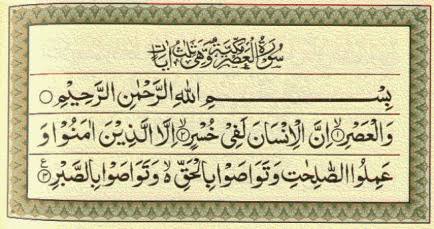 سُورَةُ الْعَصْرِ مَكِّيَّةٌ وَّهِيَ ثَلٰثُ اٰيَاتٍ
بِسْمِ اللهِ الرَّحْمٰنِ الرَّحِيْمِ ○
وَالْعَصْرِ ۙ﴿۱﴾ اِنَّ الْاِنْسَانَ لَفِيْ خُسْرٍ ۙ﴿۲﴾ اِلَّا الَّذِيْنَ اٰمَنُوْا وَ
عَمِلُوا الصّٰلِحٰتِ وَتَوَاصَوْا بِالْحَقِّ ۙ۬ وَتَوَاصَوْا بِالصَّبْرِ ﴿۳﴾ ع